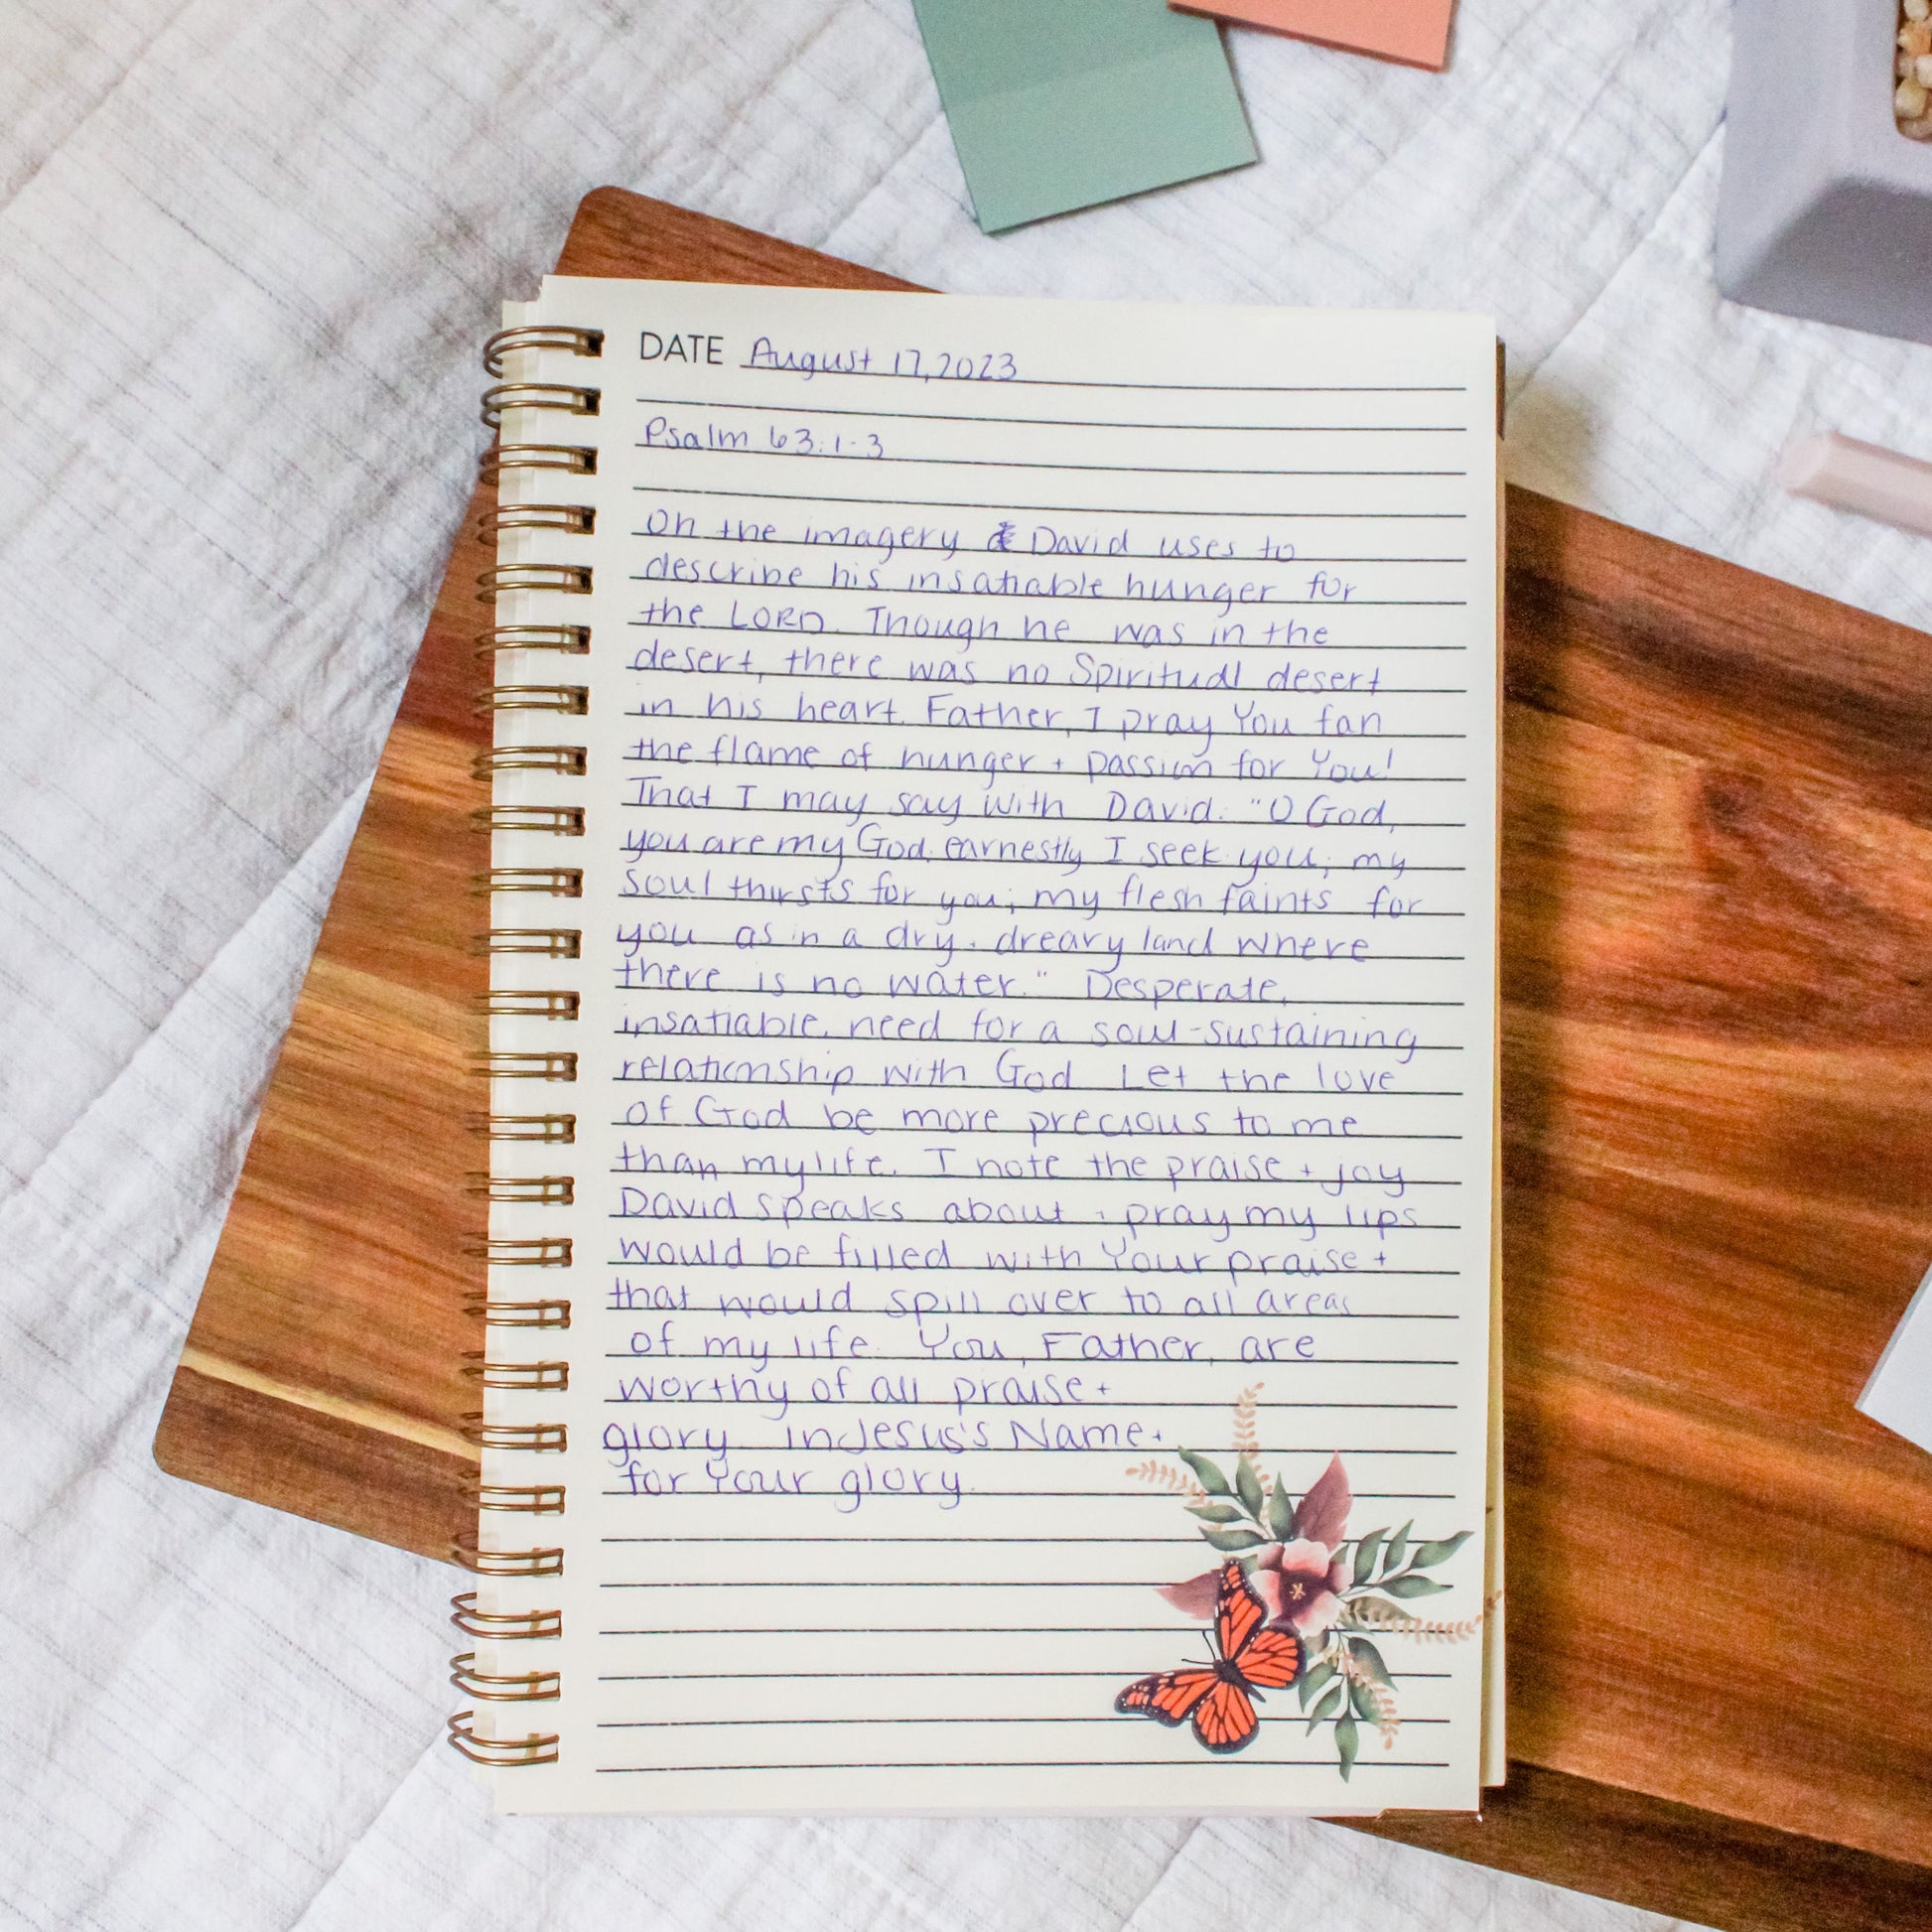 DATE August 17, 2023
Psalm 63:1-3
Oh the imagery David uses to
describe his insatiable hunger for
the LORD. Though he was in the
desert, there was no Spiritual desert
in his heart. Father, I pray You fan
the flame of hunger + passion for You!
That I may say with David: "O God,
you are my God, earnestly I seek you; my
soul thirsts for you; my flesh faints for
you as in a dry + dreary land where
there is no water." Desperate,
insatiable, need for a soul-sustaining
relationship with God. Let the love
of God be more precious to me
than my life. I note the praise + joy
David speaks about + pray my lips
would be filled with Your praise +
that would spill over to all areas
of my life. You, Father, are
worthy of all praise +
glory. In Jesus's Name +
for Your glory.